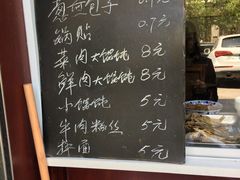 葱油包子 0.7元
锅贴 0.7元
菜肉大馄饨 8元
鲜肉大馄饨 8元
小馄饨 5元
牛肉粉丝 5元
拌面 5元